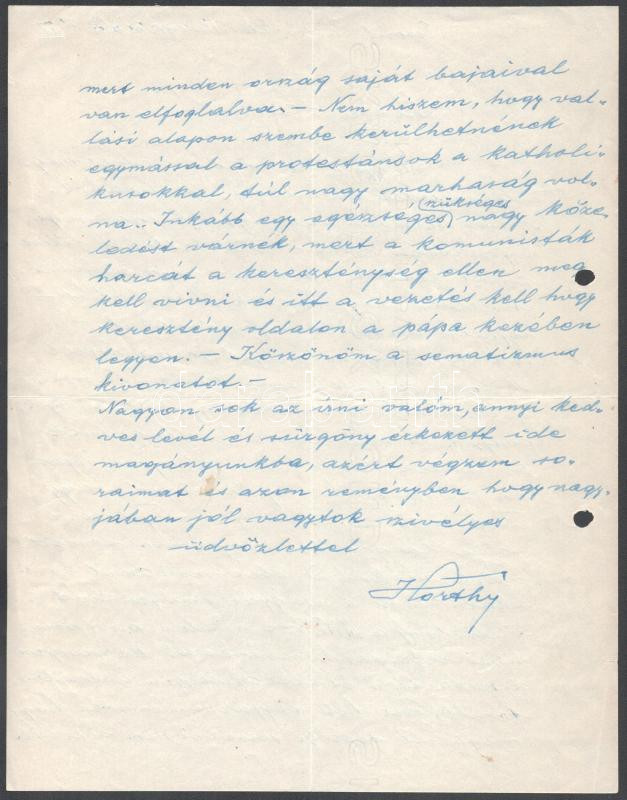 mert minden ország saját bajaival
van elfoglalva. – Nem hiszem, hogy val-
lási alapon szembe kerülhetnének
egymással a protestánsok a katholi-
kusokkal, túl nagy marhaság vol-
na.. Inkább egy egészséges (szükséges) nagy köze-
ledést várnék, mert a komunisták
harcát a kereszténység ellen meg
kell vivni és itt a vezetés kell hogy
keresztény oldalon a pápa kezében
legyen. – Köszönöm a sematizmus
kivonatot. –
Nagyon sok az irni valóm, annyi ked-
ves levél és sürgöny érkezett ide
magányunkba, azért végzem so-
raimat és azon reményben hogy nagy-
jában jól vagytok szivélyes
üdvözlettel
Horthy